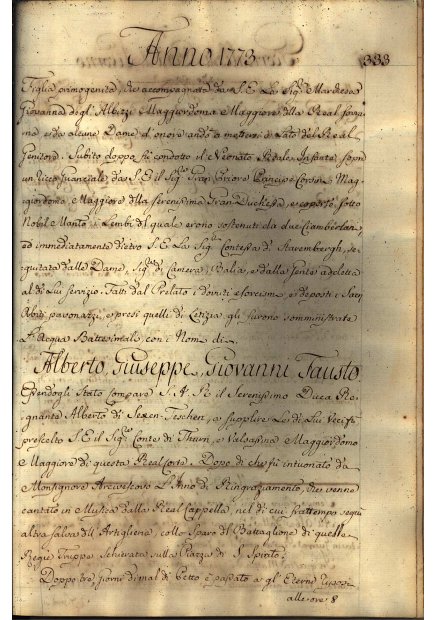 Anno 1773
333
Figlia primogenita, che accompagnata da S. E. La Sig.ra Marchesa
Giovanna degl'Albizzi Maggiordoma Maggiore della Real
ma e da alcune Dame d'onore andò a mettersi a Lato del Real
Genitore. Subito doppo fù condotto il Neonato Reale Infante sopra
un ricco Guanciale da S. E. il Sig.re Gran Priore Principe Corsini Mag-
giordomo Maggiore della Serenissima Gran Duchessa, e coperto sotto
Nobil Manto i Lembi del quale erono sostenuti da due Ciamberlani,
ed immediatamente dietro S. E. La Sig.ra Contessa di Starembergh, se-
guitata dalle Dame, Sig.re di Camera, Balia, e dalla gente addetta
al di Lui servizio. Fatti dal Prelato i doviti esorcismi, e deposti i Sacri
Abiti pavonazzi, e presi quelli di Letizia gli furono somministrata
L'Acqua Battesimale, con i Nomi di
Alberto, Giuseppe, Giovanni, Fausto.
Essendogli Stato Compare S. A. R. il Serenissimo Duca Re-
gnante Alberto di Saxen-Teschen, a supplire Le di Lui Veci fù
prescelto S. E. il Sig.re Conte di Thurn, e Valsassina Maggiordomo
Maggiore di questa Real Corte. Dopo di che fù intuonato da
Monsignore Arcivescovo L'Inno di Ringraziamento, che venne
cantato in Musica dalla Real Cappella, nel di cui frattempo seguì
altra salva dell'Artiglieria, collo Sparo del Battaglione di queste
Regie Truppe Schierate sulla Piazza di S. Spirito.
Doppo tre giorni di mal di Petto è passato a gl'Eterni riposi
alle ore 8